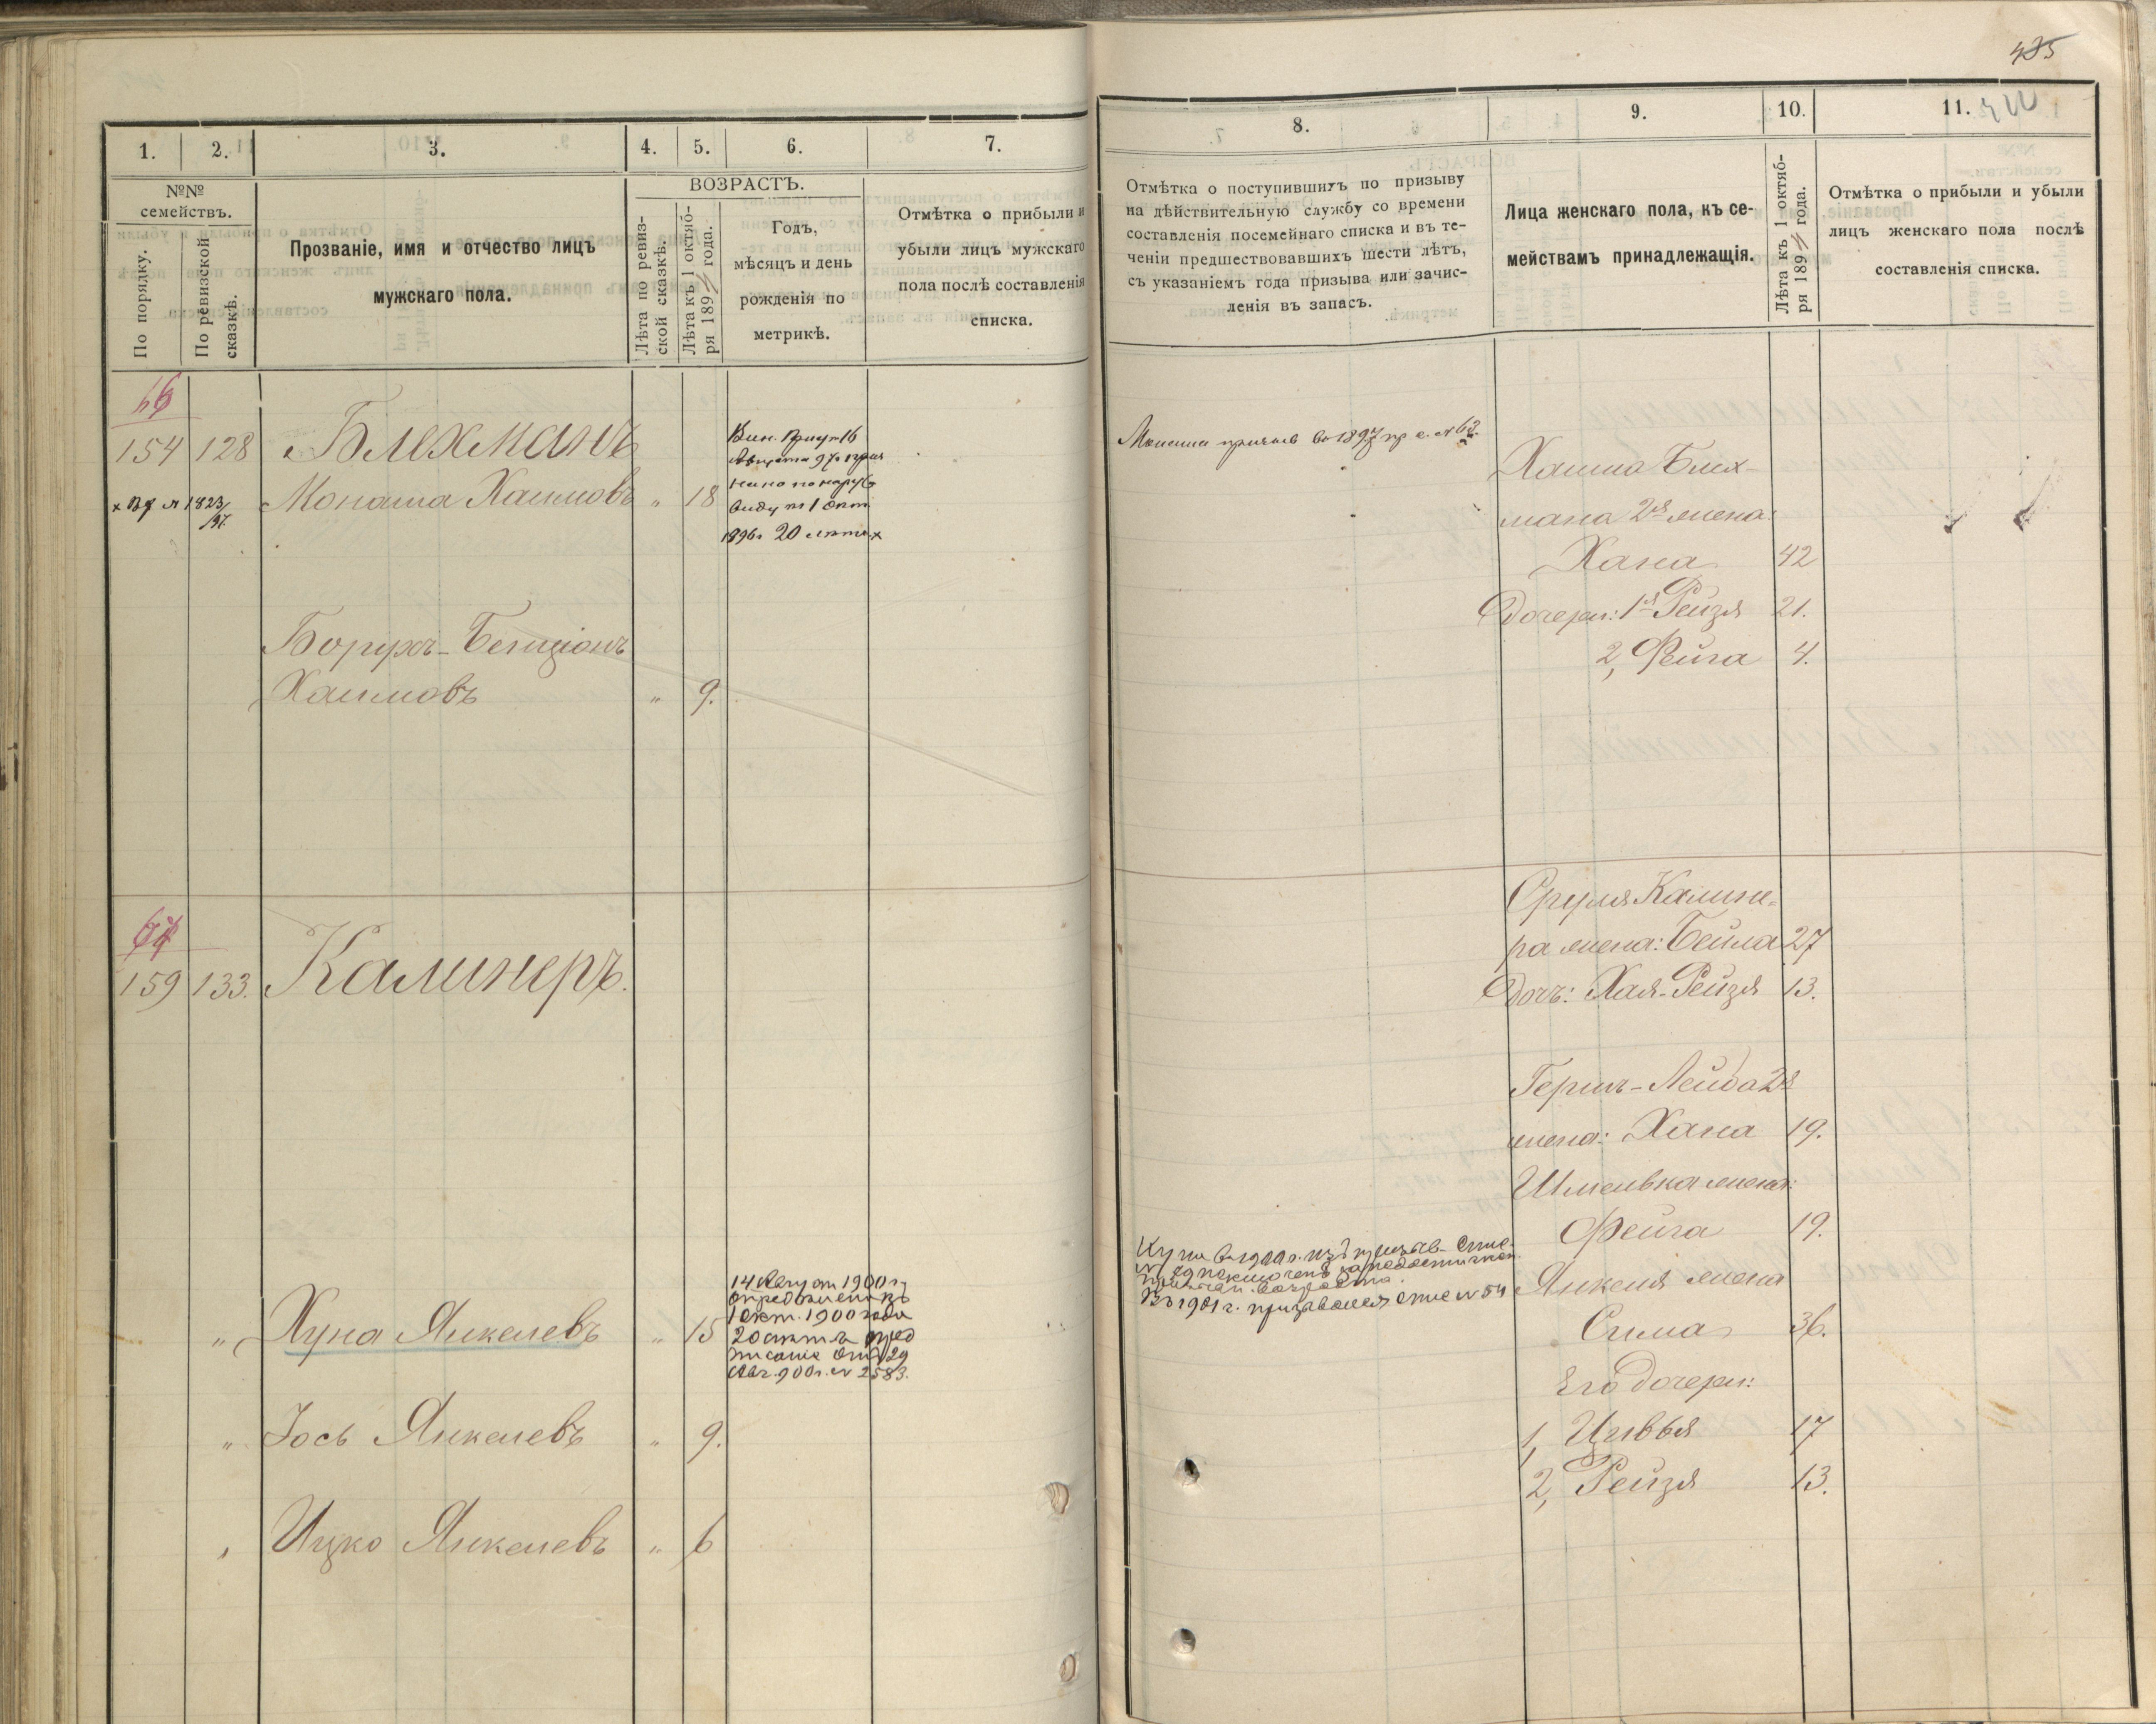 435
1. 2. 3. 4. 5. 6. 7.
№№ семействъ.
По порядку.
По ревизской сказкѣ.
Прозваніе, имя и отчество лицъ
мужскаго пола.
ВОЗРАСТЪ.
Лѣта по ревиз-
ской сказкѣ.
Лѣта къ 1 октяб-
ря 189 года.
Годъ,
мѣсяцъ и день
рожденія по
метрикѣ.
Отмѣтка о прибыли и
убыли лицъ мужскаго
пола послѣ составленія
списка.
154 128 Блехманъ
Монаша Хаимовъ " 18
1896 г 20 лѣтъ
Борухъ-Бенціонъ
Хаимовъ " 9.
159 133. Калинеръ.
" Хуна Янкелевъ " 15
14 Август 1900 г
опредѣленъ къ
1 окт. 1900 года
20 лѣтъ пред
писаніе отъ 29
Авг. 900 г. № 2583.
" Іось Янкелевъ " 9.
Ицко Янкелевъ " 6
8. 9. 10. 11.
Отмѣтка о поступившихъ по призыву
на дѣйствительную службу со времени
составленія посемейнаго списка и въ те-
ченіи предшествовавшихъ шести лѣтъ,
съ указаніемъ года призыва или зачис-
ленія въ запасъ.
Лица женскаго пола, къ се-
мействамъ принадлежащія.
Лѣта къ 1 октяб-
ря 189 года.
Отмѣтка о прибыли и убыли
лицъ женскаго пола послѣ
составленія списка.
Монаша призыв в 1897 пр с. № 62.
Хаима Блех-
мана 2я жена:
Хана 42
Дочери: 1я Рейзя 21.
2, Фейга 4.
Сруля Калине-
ра жена: Бейла 27
Дочь: Хая-Рейзя 13.
Гершъ-Лейба 2я
жена: Хана 19.
Шмелька жена:
Фейга 19.
Хуна в 1900 г. изъ призыв. спис.
№ 89 исключенъ за недостиженіем
призывн. возраста.
Въ 1901 г. призывался спис № 54
Янкеля жена
Сима 36.
Его дочери:
1, Цивья 17
2, Рейзя 13.